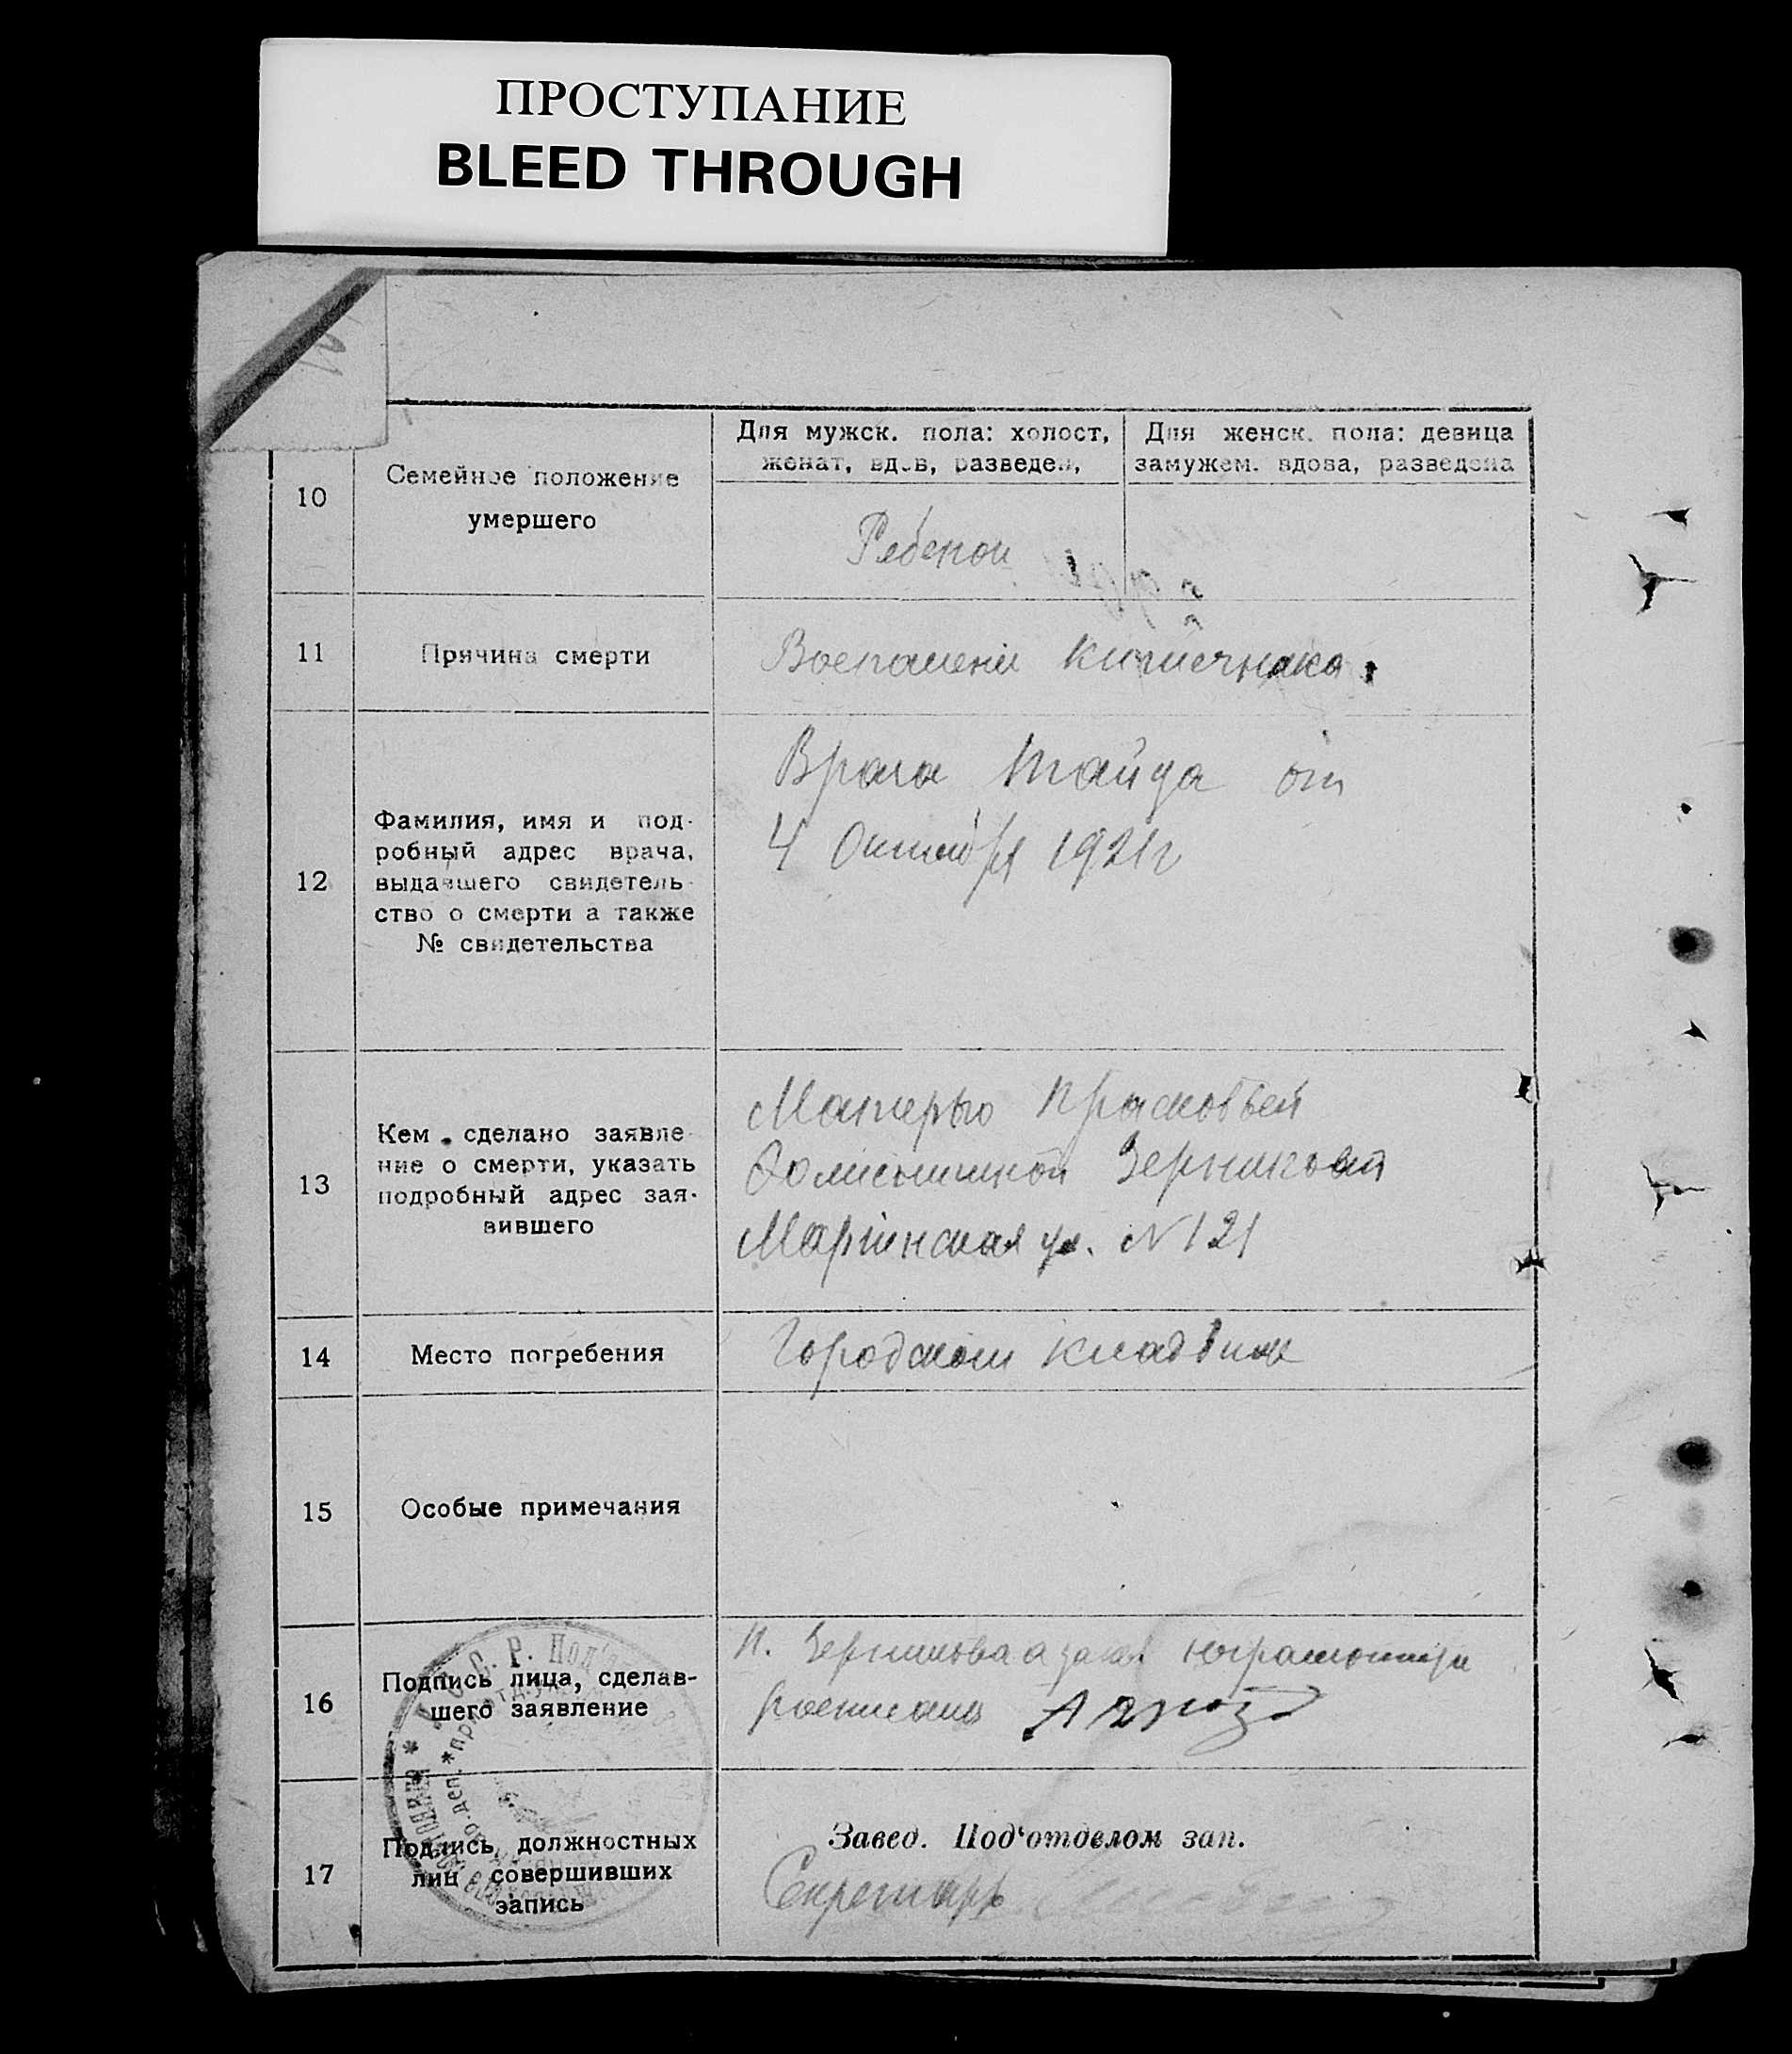 ПРОСТУПАНИЕ
BLEED THROUGH
Для мужск. пола: холост,
женат, вдов, разведен,
Для женск. пола: девица
замужем. вдова, разведена
10
Семейное положение
умершего
Ребенок
11
Причина смерти
Воспаление кишечника
12
Фамилия, имя и под-
робный адрес врача,
выдавшего свидетель-
ство о смерти а также
№ свидетельства
Врача от
4 Октября 1921 г
13
Кем сделано заявле-
ние о смерти, указать
подробный адрес зая-
вившего
Матерью Прасковьей
Зерниковой
Маріинская ул. N 121
14
Место погребения
Городском кладбище
15
Особые примечания
16
Подпись лица, сделав-
шего заявление
П. Зерникова а за
17
Подпись должностных
лиц совершивших
запись
Завед. Под‘отделом зап.
Секретарь